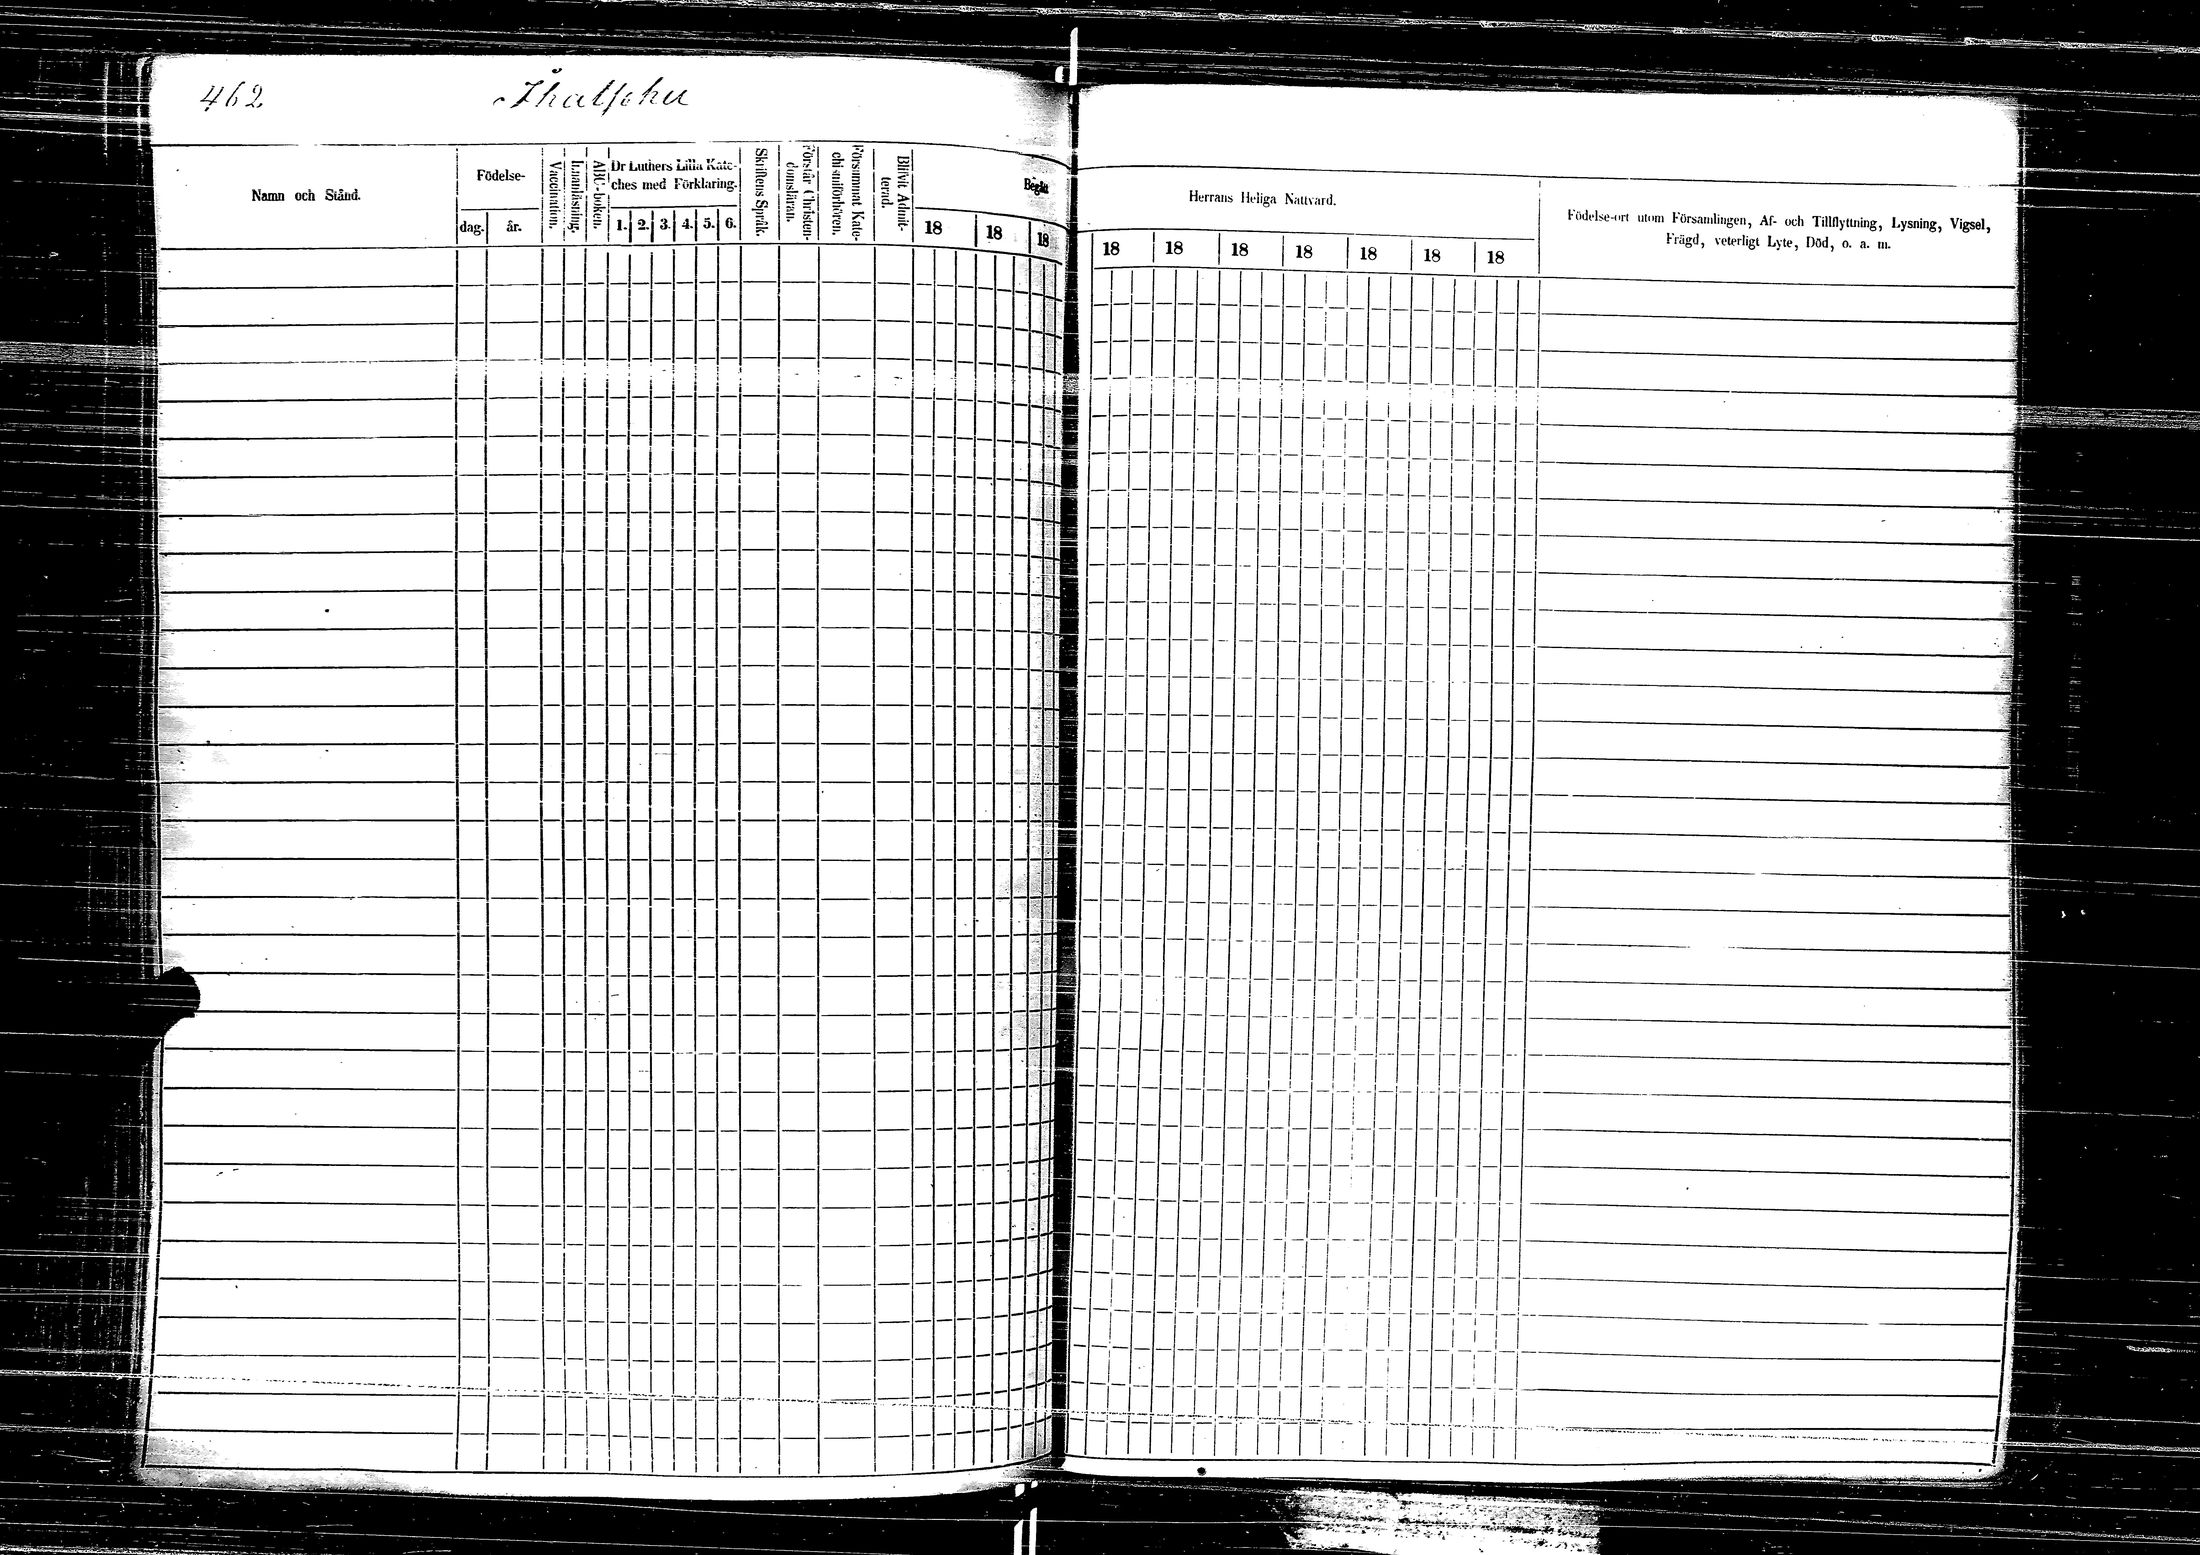 462
Namn och Stånd.
Födelse-
dag. år.
Vaccination.
Innanläsning.
ABC-boken.
Dr Luthers Lilla Kate-
ches med Förklaring.
1. 2. 3. 4. 5. 6.
Skriftens Språk.
Förstår Christen-
domsläran.
Försummat Kate-
chismiförhören.
Blifvit Admit-
terad.
Begått
18 18 18
Herrans Heliga Nattvard.
18 18 18 18 18 18 18
Födelse-ort utom Församlingen, Af- och Tillflyttning, Lysning, Vigsel,
Frägd, veterligt Lyte, Död, o. a. m.